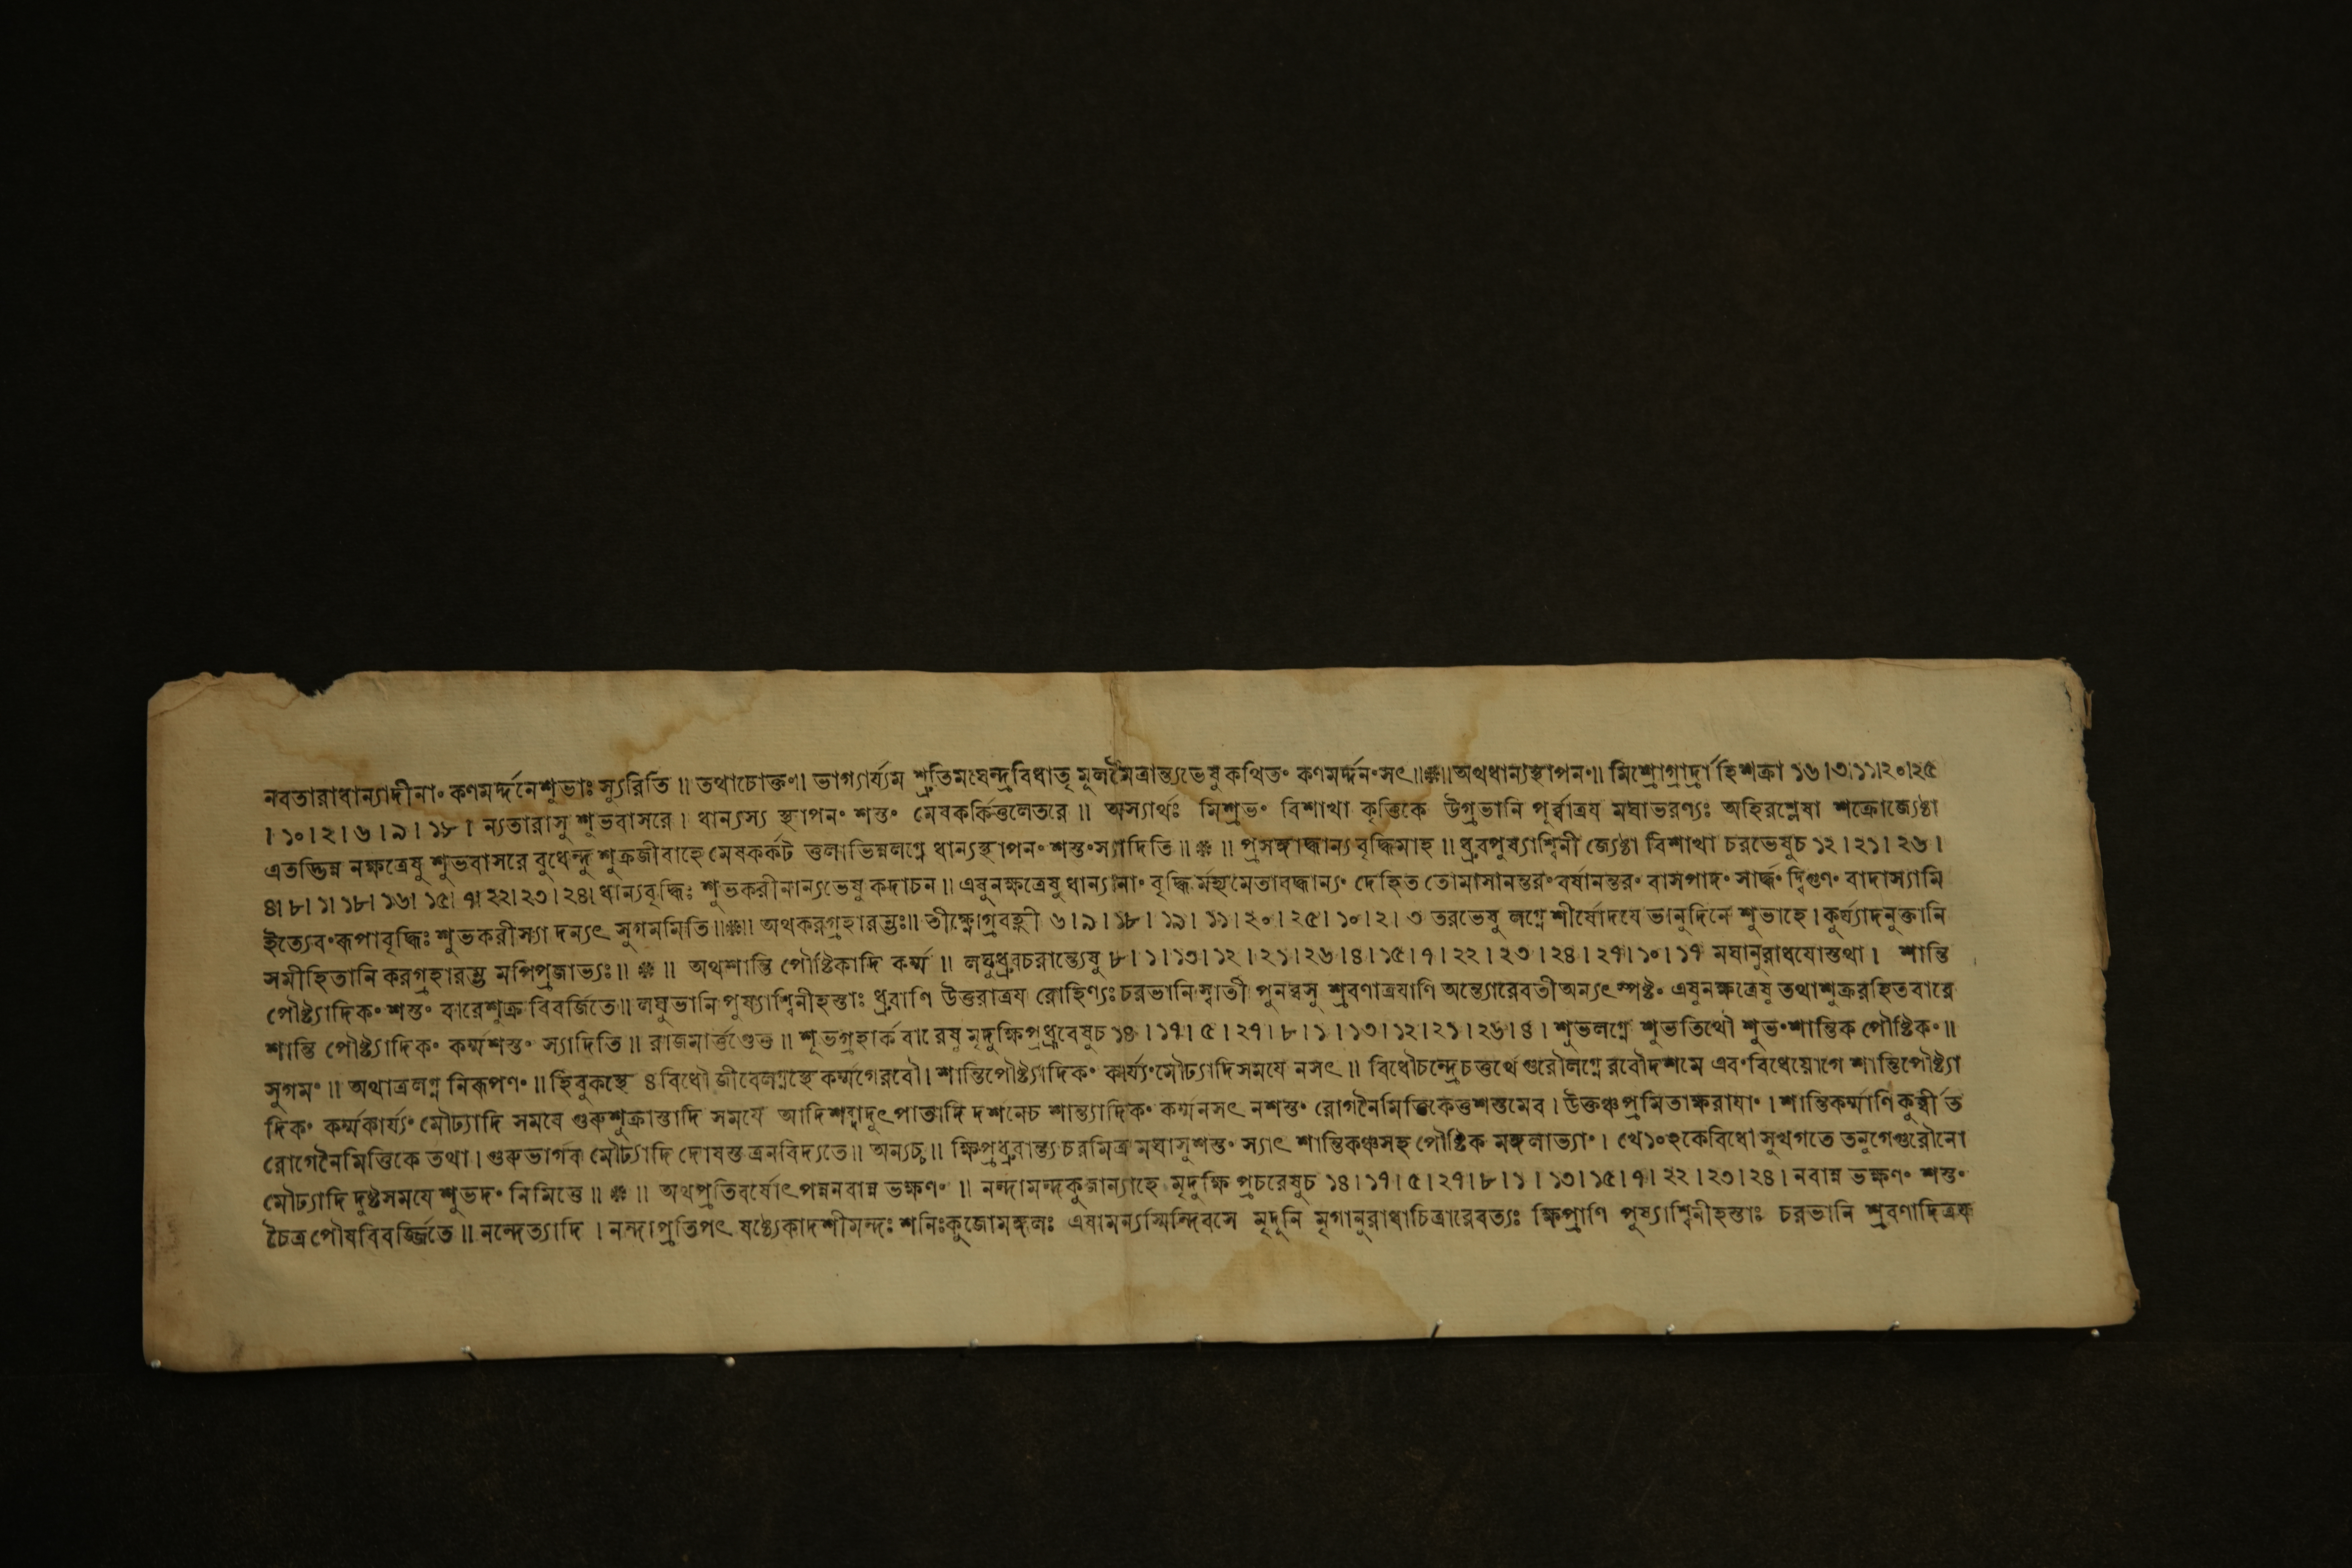 নবতারাধান্যাদীনাং কণমর্দ্দনেশুভাঃ স্যুরিতি ॥ তথাচোক্তং। ভাগ্যার্য্যম শ্রুতিমঘেন্দ্রবিধাতৃ মূলমৈত্রান্ত্যভেষু কথিতং কণমর্দ্দনংসৎ॥❊॥অথধান্যস্থাপনং॥ মিশ্রোগ্রার্দ্রাহিশক্রা ১৬।৩।১১।২০।২৫
।১০।২।৬।৯।১৮। ন্যতারাসু শুভবাসরে। ধান্যস্য স্থাপনং শস্তং মেষকর্কিত্তুলেতরে ॥ অস্যার্থঃ মিশ্রভং বিশাখা কৃত্তিকে উগ্রভানি পূর্ব্বাত্রয মঘাভরণ্যঃ অহিরশ্লেষা শক্রোজ্যেষ্ঠা
এতদ্ভিন্ন নক্ষত্রেষু শুভবাসরে বুধেন্দু শুক্রজীবাহে মেষকর্কট তুলাভিন্নলগ্নে ধান্যস্থাপনং শস্তংস্যাদিতি॥❊॥ প্রসঙ্গাদ্ধান্য বৃদ্ধিমাহ ॥ ধ্রুবপুষ্যাশ্বিনী জ্যেষ্ঠা বিশাখা চরভেষুচ ১২।২১।২৬।
৪।৮।১।১৮।১৬।১৫।৭।২২।২৩।২৪। ধান্যবৃদ্ধিঃ শুভকরীনান্যভেষু কদাচন॥ এষুনক্ষত্রেষু ধান্যানাং বৃদ্ধি র্মহ্যমেতাবদ্ধান্যং দেহিত তোমাসানন্তরংবর্ষানন্তরং বাসপাদং সার্দ্ধং দ্বিগুণং বাদাস্যামি
ইত্যেবংরূপাবৃদ্ধিঃ শুভকরীস্যা দন্যৎ সুগমমিতি॥❊॥ অথকরগ্রহারম্ভঃ॥ তীক্ষ্ণোগ্রবহ্ণী ৬।৯।১৮।১৯।১১।২০।২৫।১০।২।৩ তরভেষু লগ্নে শীর্ষোদযে ভানুদিনে শুভাহে। কুর্য্যাদনুক্তানি
সমীহিতানি করগ্রহারম্ভ মপিপ্রজাভ্যঃ॥❊॥ অথশান্তি পৌষ্টিকাদি কর্ম্ম ॥ লঘুধ্রুবচরান্ত্যেষু ৮।১।১৩।১২।২১।২৬।৪।১৫।৭।২২।২৩।২৪।২৭।১০।১৭ মঘানুরাধযোস্তথা। শান্তি
পৌষ্ট্যাদিকং শস্তং বারেশুক্র বিবর্জিতে॥ লঘুভানি পুষ্যাশ্বিনীহস্তাঃ ধ্রুবাণি উত্তরাত্রয রোহিণ্যঃ চরভানি স্বাতী পুনর্ব্বসু শ্রবণাত্রযাণি অন্ত্যোরেবতী অন্যৎ স্পষ্টং এষুনক্ষত্রেষু তথাশুক্ররহিতবারে
শান্তি পৌষ্ট্যাদিকং কর্ম্মশস্তং স্যাদিতি॥ রাজমার্ত্তণ্ডেতু॥ শুভগ্রহার্ক বারেষু মৃদুক্ষিপ্রধ্রুবেষুচ ১৪।১৭।৫।২৭।৮।১।১৩।১২।২১।২৬।৪। শুভলগ্নে শুভতিথৌ শুভংশান্তিক পৌষ্টিকং॥
সুগমং॥ অথাত্রলগ্ন নিরূপণং॥ হিবুকস্থে ৪ বিধৌ জীবেলগ্নস্থে কর্ম্মগেরবৌ। শান্তিপৌষ্ট্যাদিকং কার্য্যংমৌঢ্যাদিসমযে নসৎ॥ বিধৌচন্দ্রেচতুর্থে গুরৌলগ্নে রবৌদশমে এবংবিধেযোগে শান্তিপৌষ্ট্যা
দিকং কর্ম্মকার্য্যং মৌঢ্যাদি সমযে গুরুশুক্রাস্তাদি সমযে আদিশব্দাদুৎপাতাদি দর্শনেচ শান্ত্যাদিকং কর্ম্মনসৎ নশস্তং রোগনৈমিত্তিকেতুশস্তমেব। উক্তঞ্চপ্রমিতাক্ষরাযাং। শান্তিকর্ম্মাণি কুর্ব্বীত
রোগেনৈমিত্তিকে তথা। গুরুভার্গব মৌঢ্যাদি দোষস্ত ত্রনবিদ্যতে॥ অন্যচ্চ॥ ক্ষিপ্রধ্রুবান্ত্য চরমিত্র মঘাসুশস্তং স্যাৎ শান্তিকঞ্চসহ পৌষ্টিক মঙ্গলাভ্যাং। খে১০র্কেবিধৌ সুখগতে তনুগেগুরৌনো
মৌঢ্যাদি দুষ্টসমযে শুভদং নিমিত্তে॥❊॥ অথপ্রতিবর্ষোৎপন্ননবান্ন ভক্ষণং॥ নন্দামন্দকুজান্যাহে মৃদুক্ষি প্রচরেষুচ ১৪।১৭।৫।২৭।৮।১।১৩।১৫।৭।২২।২৩।২৪। নবান্ন ভক্ষণং শস্তং
চৈত্রপৌষবিবর্জ্জিতে॥ নন্দেত্যাদি। নন্দাপ্রতিপৎ ষষ্ঠ্যেকাদশীমন্দঃ শনিঃকুজোমঙ্গলঃ এষামন্যস্মিন্দিবসে মৃদুনি মৃগানুরাধাচিত্রারেবত্যঃ ক্ষিপ্রাণি পুষ্যাশ্বিনীহস্তাঃ চরভানি শ্রবণাদিত্রয